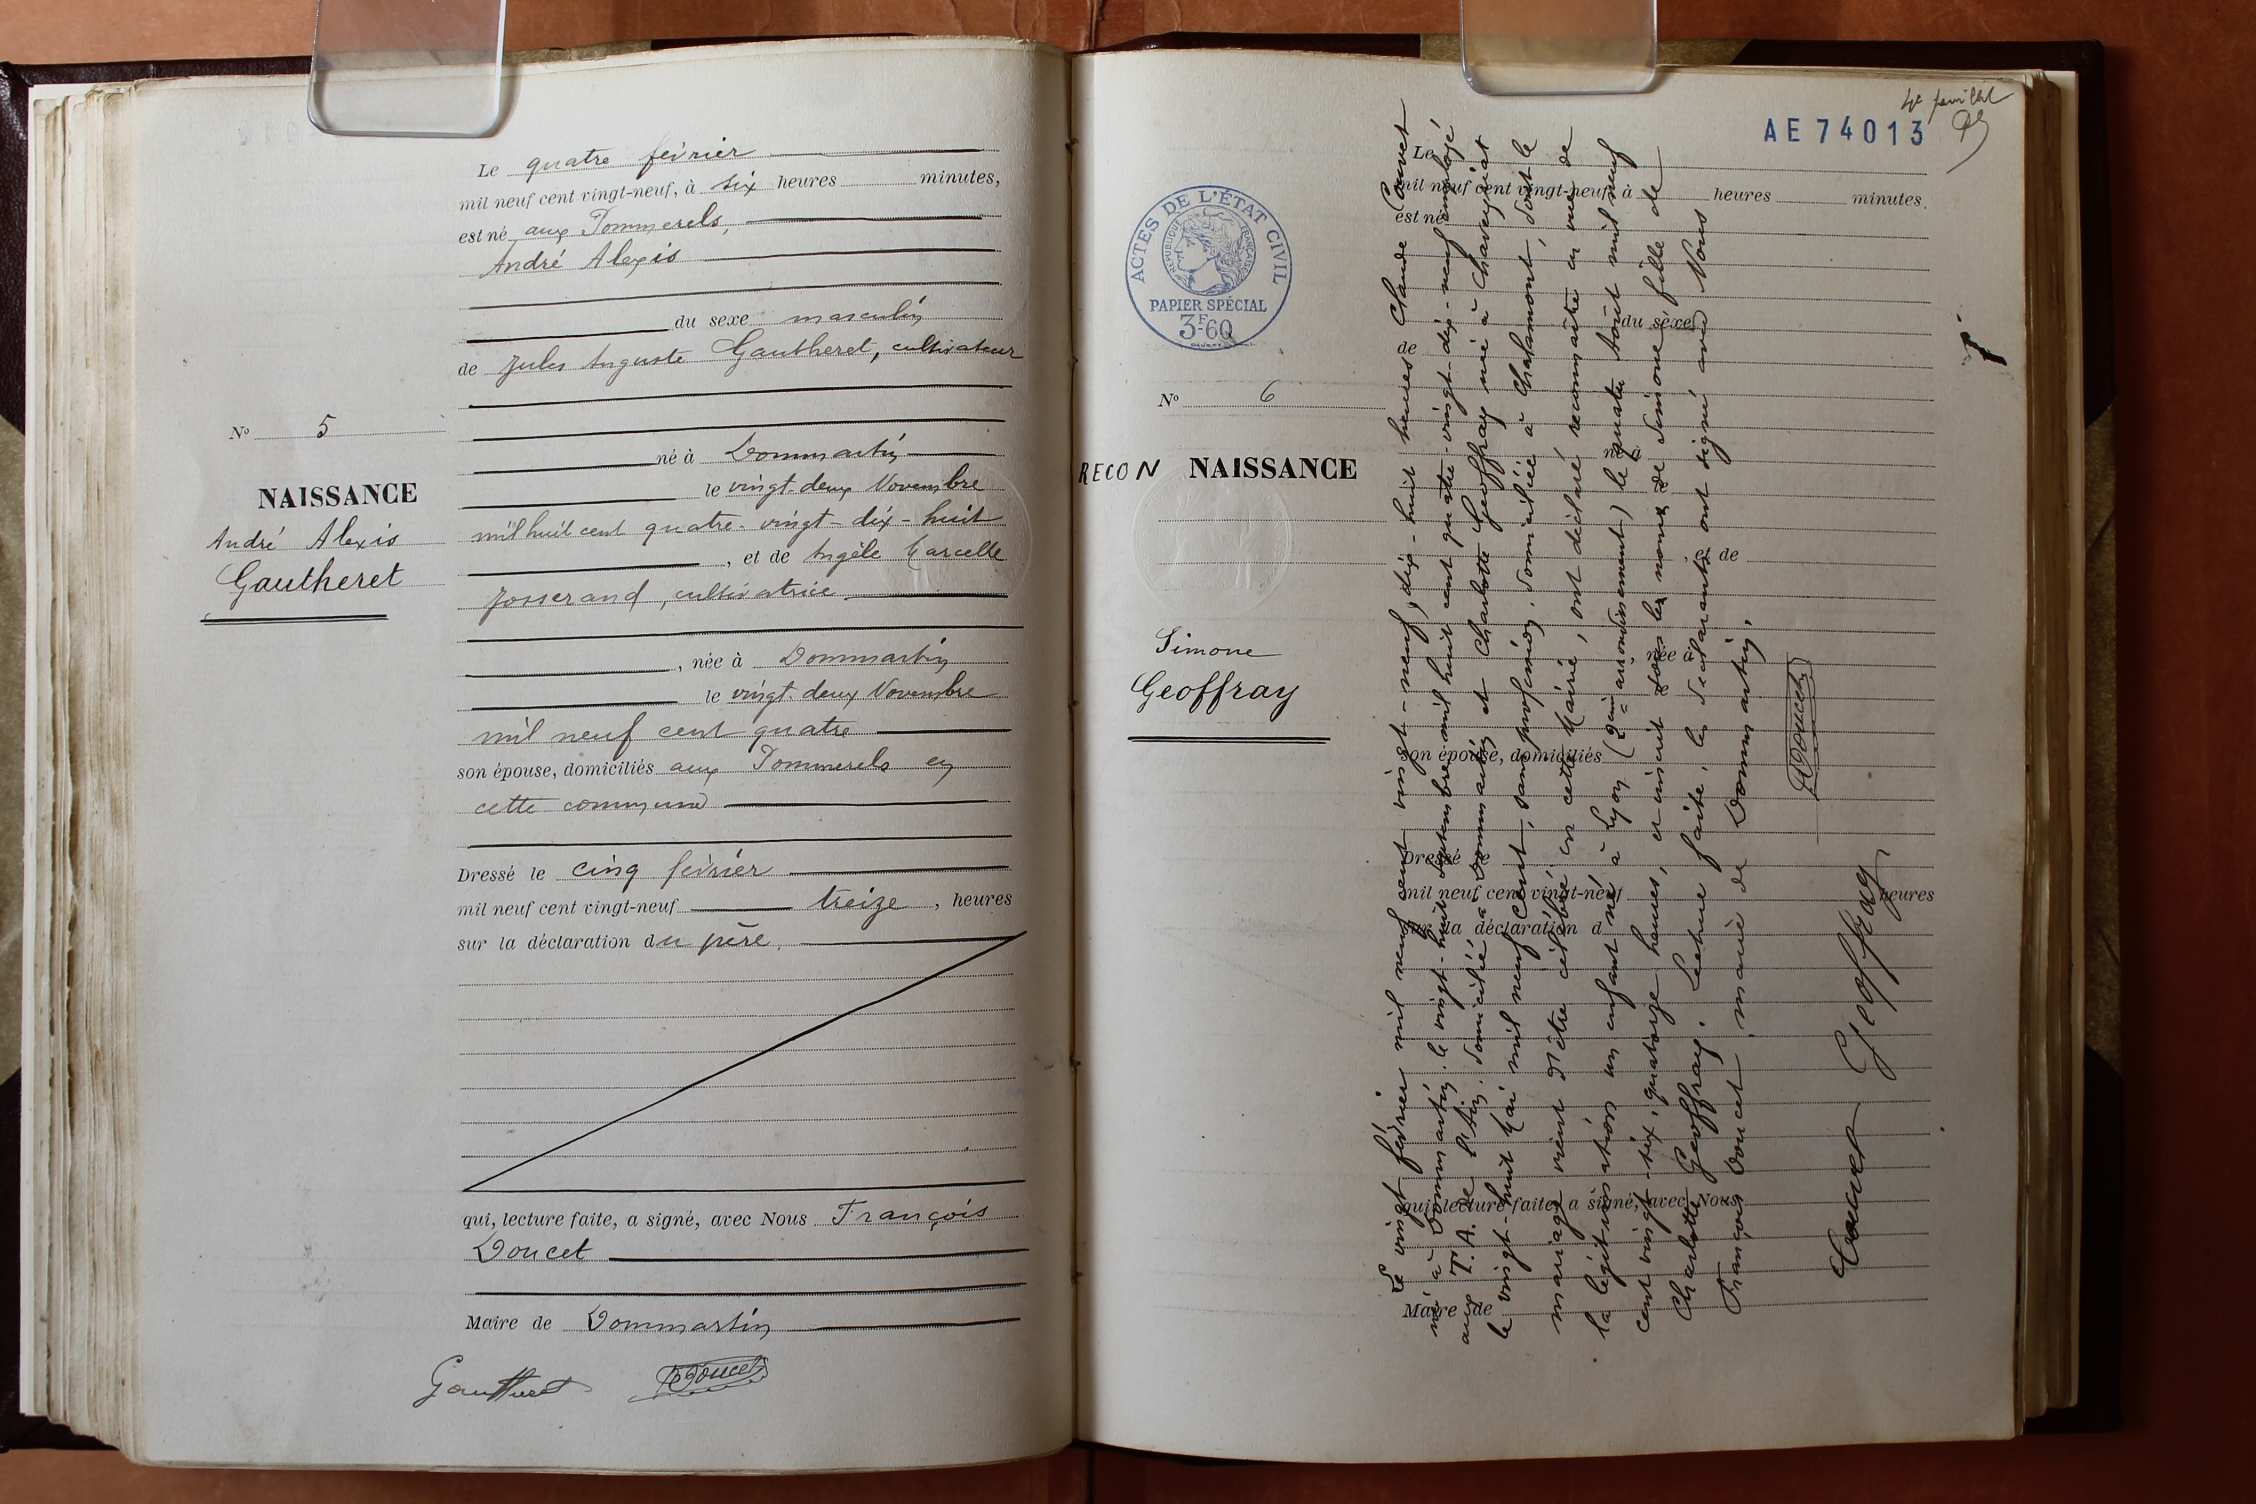 Le quatre février
mil neuf cent vingt-neuf, à six heures minutes,
est né aux Pommerels,
André Alexis
du sexe masculin
de Jules Auguste Gautheret, cultivateur
né à Dommartin
le vingt-deux Novembre
mil huit cent quatre-vingt-dix-huit
, et de Angèle Marcelle
Josserand, cultivatrice
, née à Dommartin
le vingt-deux Novembre
mil neuf cent quatre
son épouse, domiciliés aux Pommerels en
cette commune
Dressé le cinq février
mil neuf cent vingt-neuf treize, heures
sur la déclaration du père,
qui, lecture faite, a signé, avec Nous François
Doucet
Maire de Dommartin
Gautheret Doucet
No 5
NAISSANCE
André Alexis
Gautheret
4e feuillet
AE 74013
ACTES DE L'ÉTAT CIVIL
RÉPUBLIQUE FRANÇAISE
PAPIER SPÉCIAL
3F60
No 6
RECON NAISSANCE
Simone
Geoffray
Le
mil neuf cent vingt-neuf, à heures minutes,
est né
du sexe
de
né à
, et de
née à
son épouse, domiciliés
Dressé le
mil neuf cent vingt-neuf heures
sur la déclaration d
qui, lecture faite, a signé, avec Nous
Maire de
Le vingt février mil neuf cent vingt-neuf, dix-huit heures Claude Couvet
né à Dommartin le vingt-huit Septembre mil huit cent quatre-vingt-dix-neuf employé
aux T.A. de l'Ain, domicilié à Dommartin et Charlotte Geoffray née à Chaveyriat
le vingt-huit Mai mil neuf cent, sans profession, domiciliée à Chalamont, dont le
mariage vient d'être célébré en cette Mairie, ont déclaré reconnaître en vue de
la légitimation un enfant né à Lyon (2me arrondissement) le quatre Août mil neuf
cent vingt-six, quatorze heures, et inscrit sous les noms de Simone fille de
Charlotte Geoffray. Lecture faite, les déclarants ont signé avec Nous
François Doucet, maire de Dommartin.
Couvet Geoffray Doucet